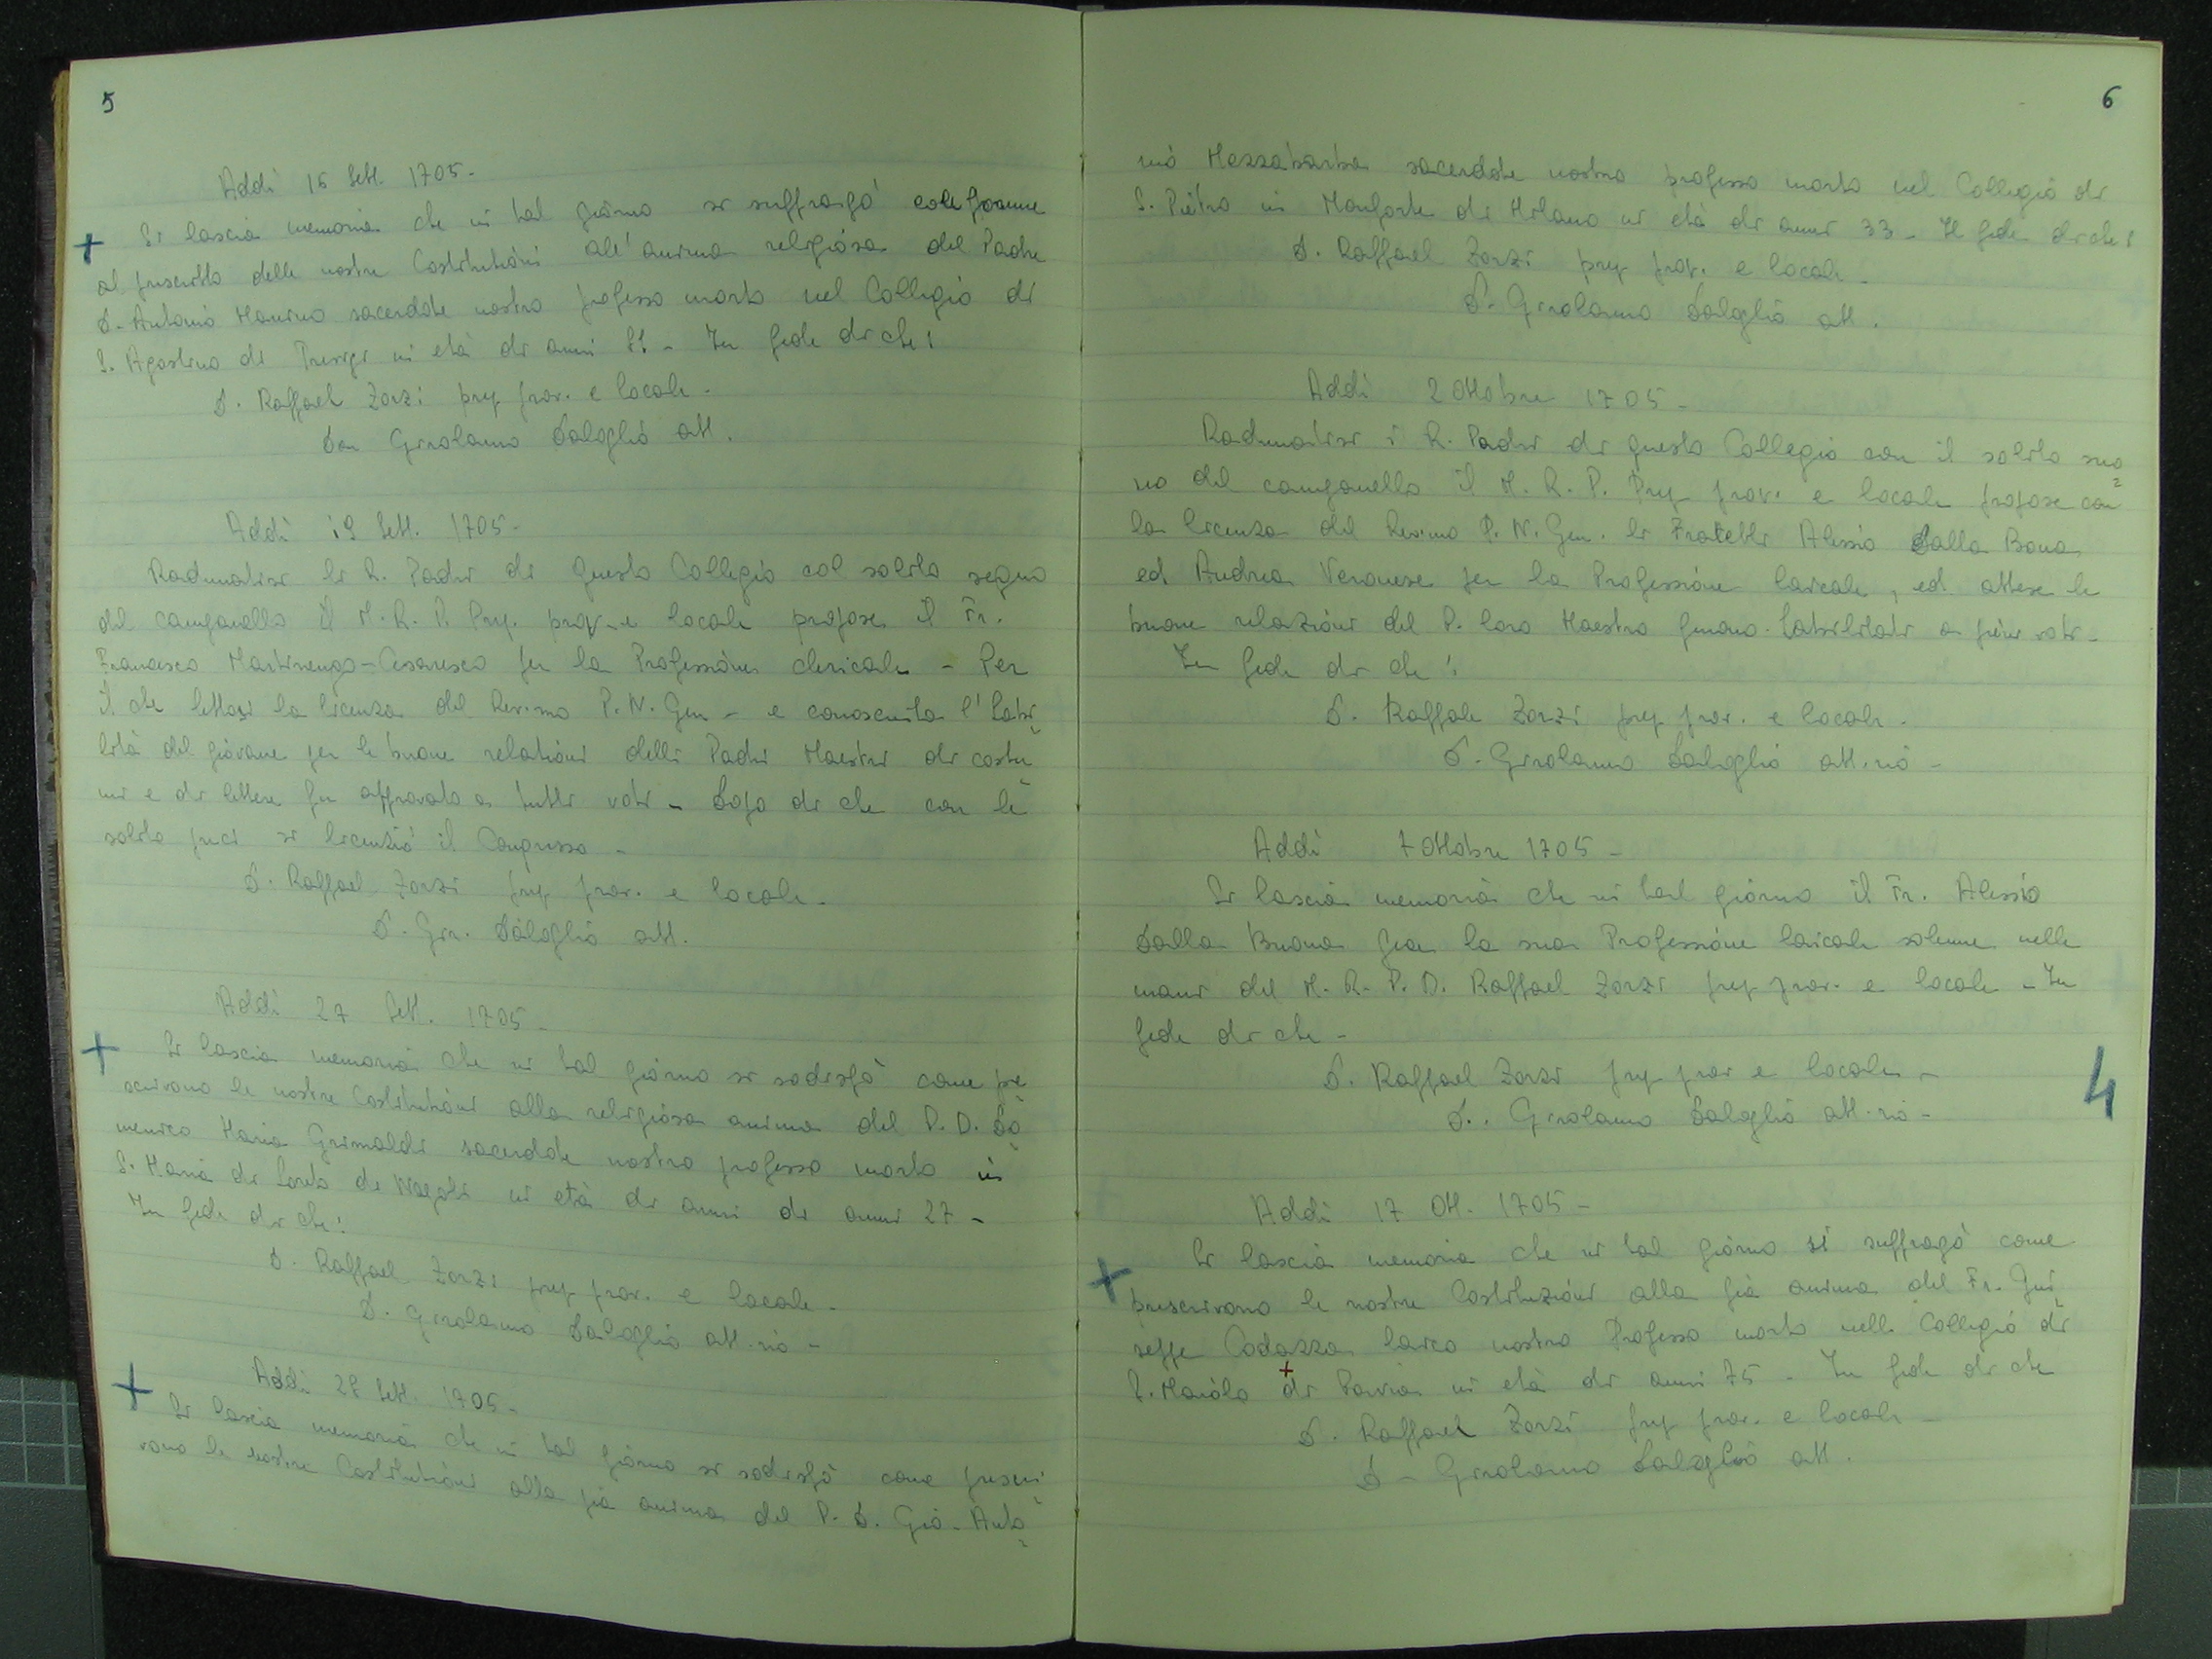 5
Addì 15 Sett. 1705-
+ Si lascia memoria che in tal giorno si suffragò conforme
al prescritto delle nostre Costitutioni all'anima religiosa del Padre
D. Antonio Manino sacerdote nostro professo morto nel Collegio di
S. Agostino di Trevigi in età di anni 81 - In fede di che!
D. Raffael Zorzi prep. prov. e locale.
Don Girolamo Saloglio att.
Addì 19 Sett. 1705-
Radunatisi li R. Padri di questo Collegio col solito segno
del campanello il M. R. P. Prep. prov. e locale propose il Fr.
Francesco Martinengo-Cesaresco per la Professione clericale - Per
il che lettasi la licenza del Rev.mo P. N. Gen - e conosciuta l'habi
lità del giovane per le buone relationi delli Padri Maestri di costu
mi e di lettere fu approvato a tutti voti - Dopo di che con le
solite preci si licenziò il Congresso -
D. Raffael Zorzi prep. prov. e locale -
D. Gir. Saloglio att.
Addì 27 Sett. 1705-
+ Si lascia memoria che in tal giorno si sodisfò come pre
scrivono le nostre Costitutioni alla religiosa anima del P. D. Do
menico Maria Grimaldi sacerdote nostro professo morto in
S. Maria di Loreto di Napoli in età di anni di anni 27 -
In fede di che!
D. Raffael Zorzi prep. prov. e locale -
D. Girolamo Saloglio att.rio -
+ Addì 28 Sett. 1705 -
Si lascia memoria che in tal giorno si sodisfò come prescri
vono le nostre Costitutioni alla pia anima del P. D. Gio. Anto
6
nio Mezzabarba sacerdote nostro professo morto nel Collegio di
S. Pietro in Monforte di Milano in età di anni 33 - In fede di che!
D. Raffael Zorzi prep. prov. e locale -
D. Girolamo Saloglio att.
Addì 2 Ottobre 1705-
Radunatisi i R. Padri di questo Collegio con il solito suo
no del campanello il M. R. P. Prep. prov. e locale propose con
la licenza del Rev.mo P. N. Gen. li Fratelli Alessio Dalla Bona
ed Andrea Veronese per la Professione laicale, ed attese le
buone relazioni del P. loro Maestro furono habilitati a pieni voti -
In fede di che!
D. Raffale Zorzi prep. prov. e locale -
D. Girolamo Saloglio att.rio -
Addì 7 Ottobre 1705 -
Si lascia memoria che in tal giorno il Fr. Alessio
Dalla Buona fece la sua Professione laicale solenne nelle
mani del M. R. P. D. Raffael Zorzi prep. prov. e locale - In
fede di che -
D. Raffael Zorzi prep prov e locale -
D. Girolamo Saloglio att.rio -
4
Addì 17 Ott. 1705 -
+ Si lascia memoria che in tal giorno si suffragò come
prescrivono le nostre Costituzioni alla pia anima del Fr. Giu
seppe Codazza laico nostro Professo morto nelli Collegio di
S. Maiolo di Pavia in età di anni 75 - In fede di che
D. Raffael Zorzi prep prov. e locale -
D - Girolamo Saloglio att.